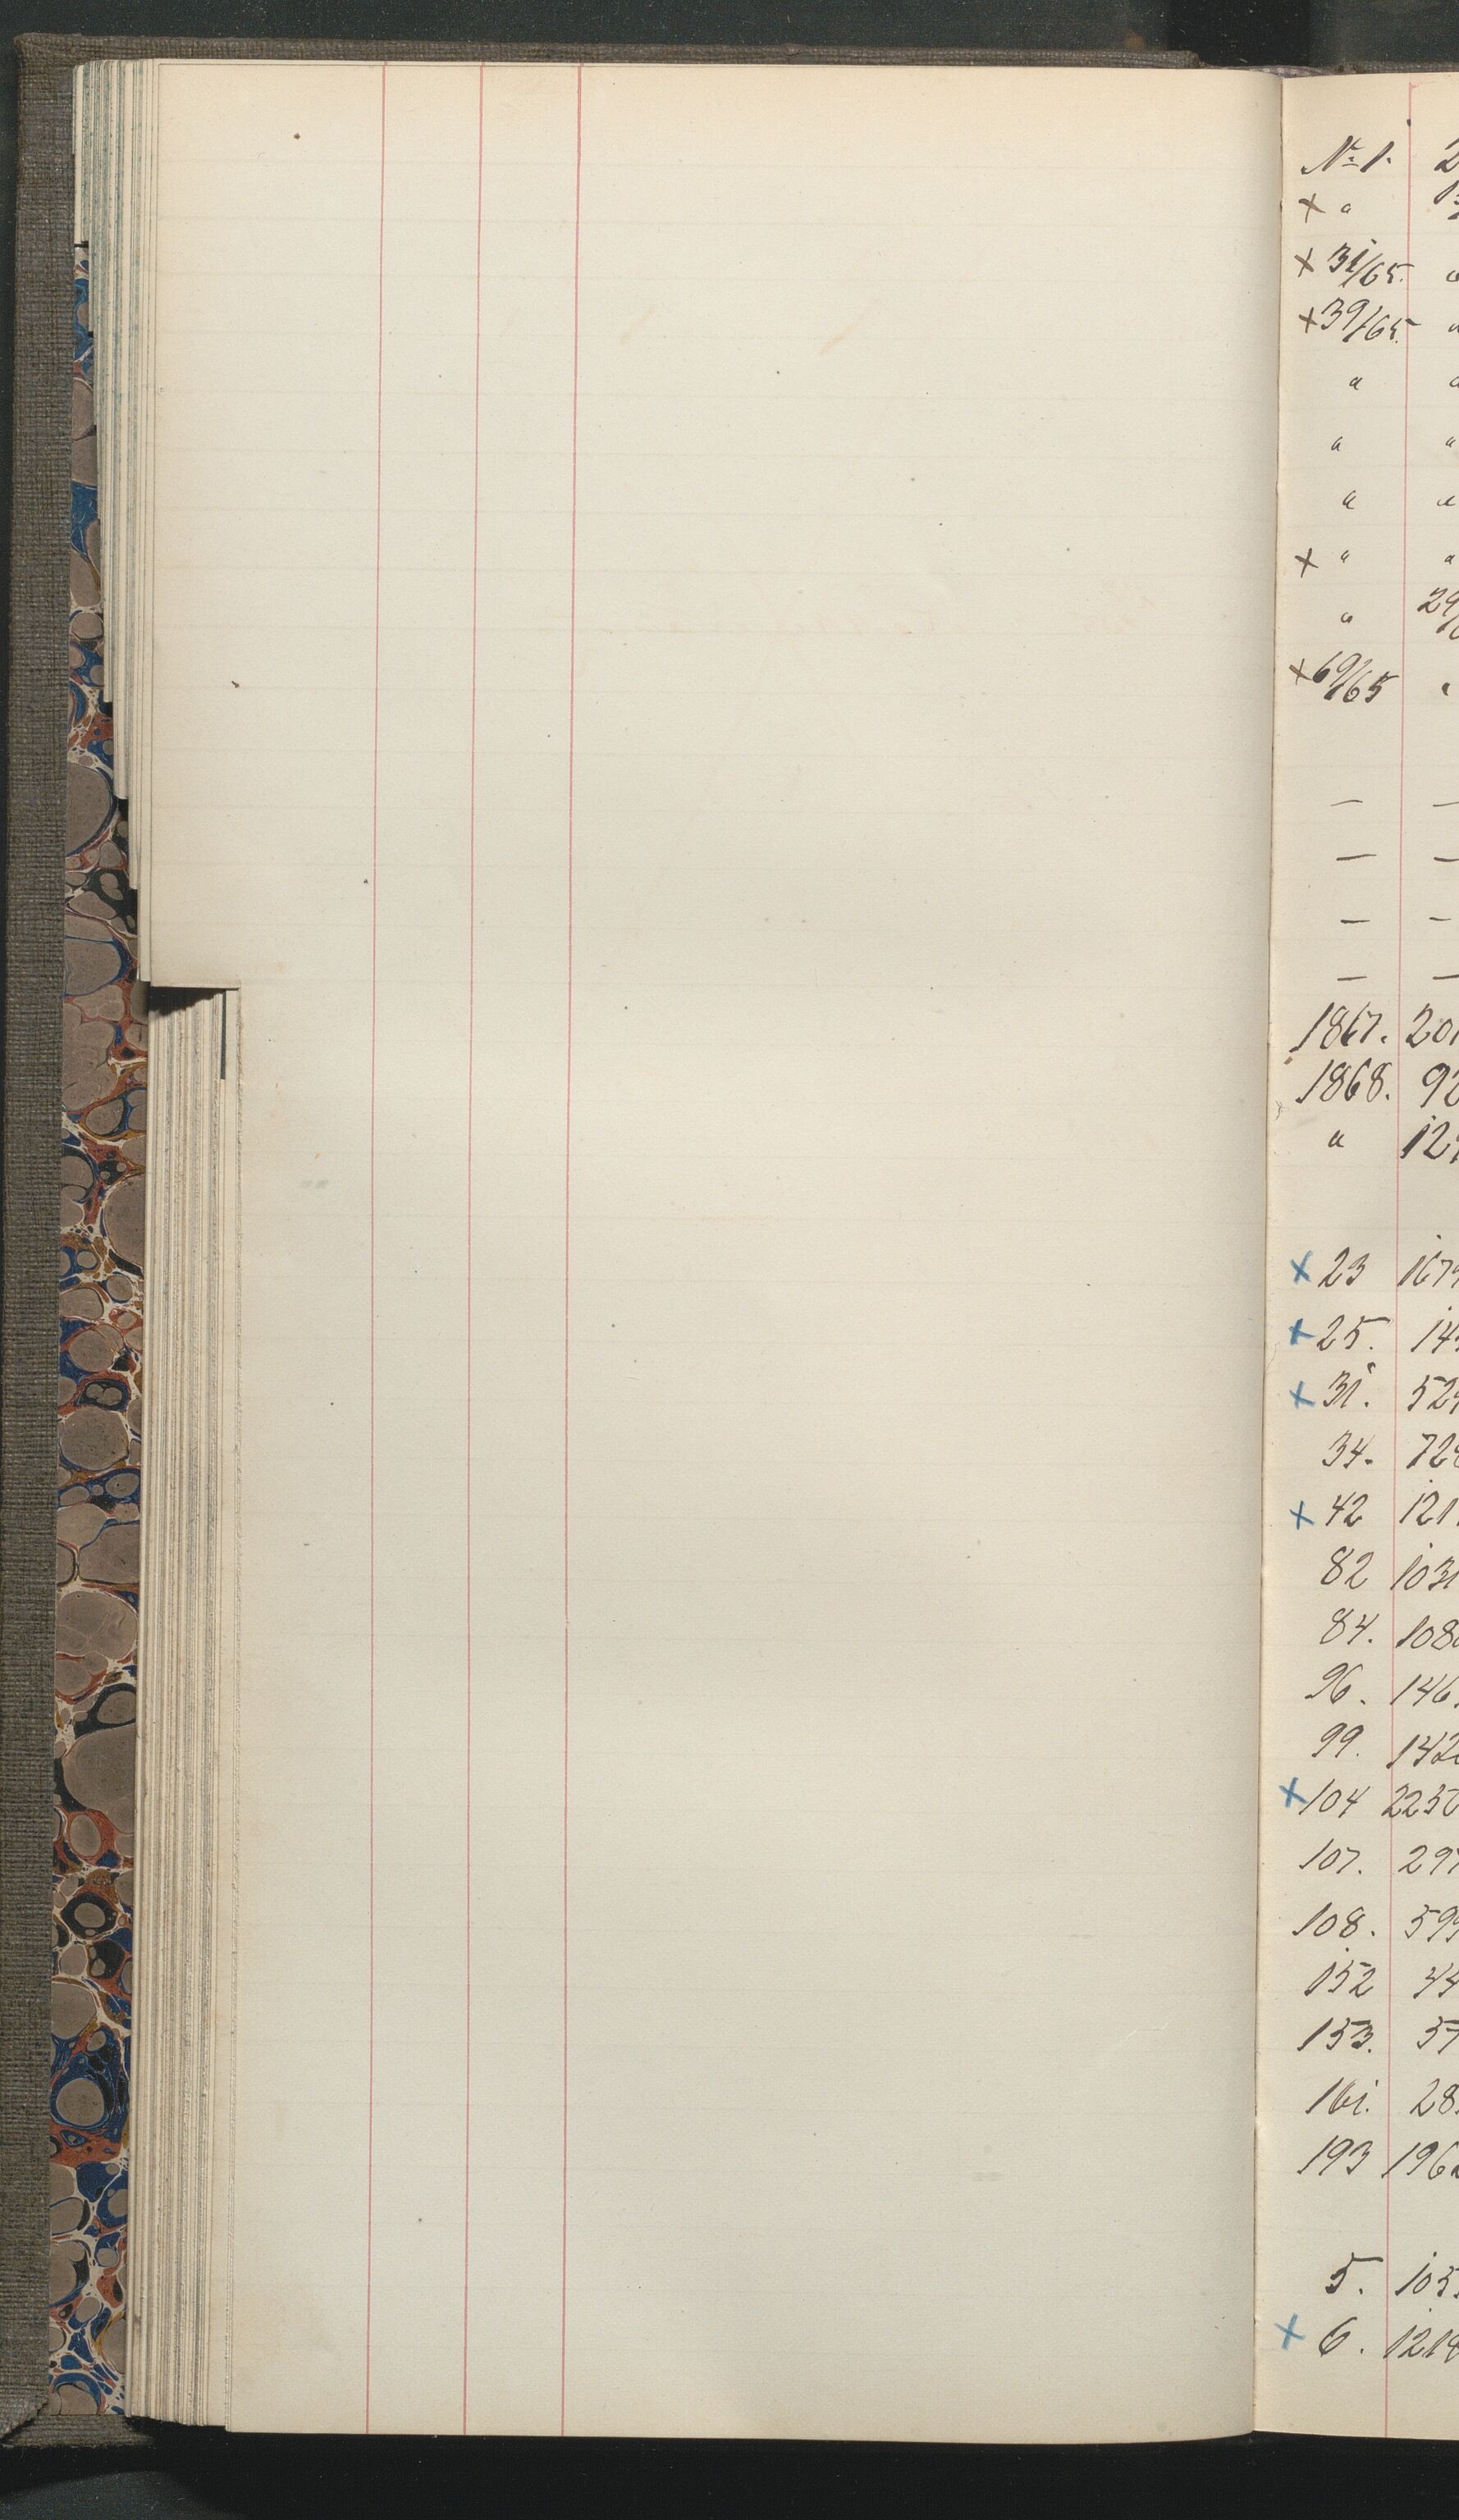 № 1. 2
× "
× 31/65. "
× 39/65. "
" "
" "
" "
× " "
"
× 69/65 "
— —
— —
— —
— —
1867. 201
1868. 92
" 12
× 23 167
× 25. 14
× 31. 52
34. 72
× 42 121
82 1031
84. 108
96. 146
99. 142
× 104 225
107. 297
108. 599
152 44
153. 57
161. 28
193 196
5. 105
× 6. 121